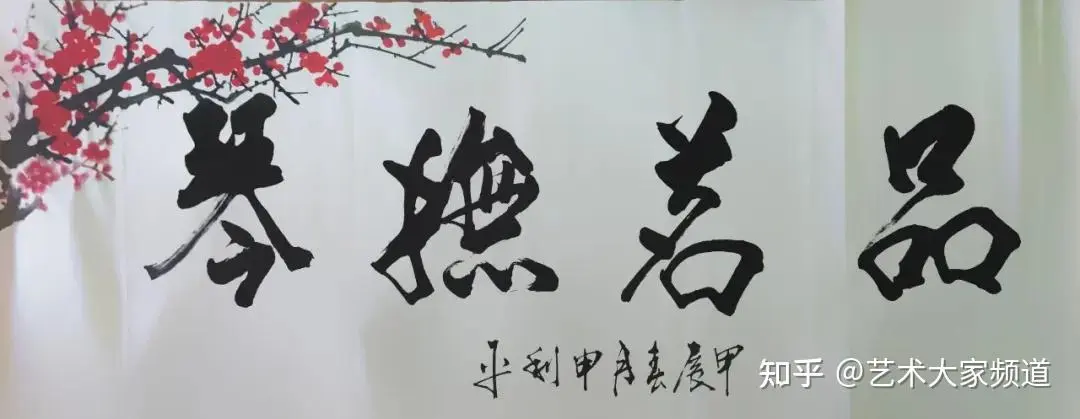 品茗撫琴
甲辰春月申利平
知乎 @艺术大家频道